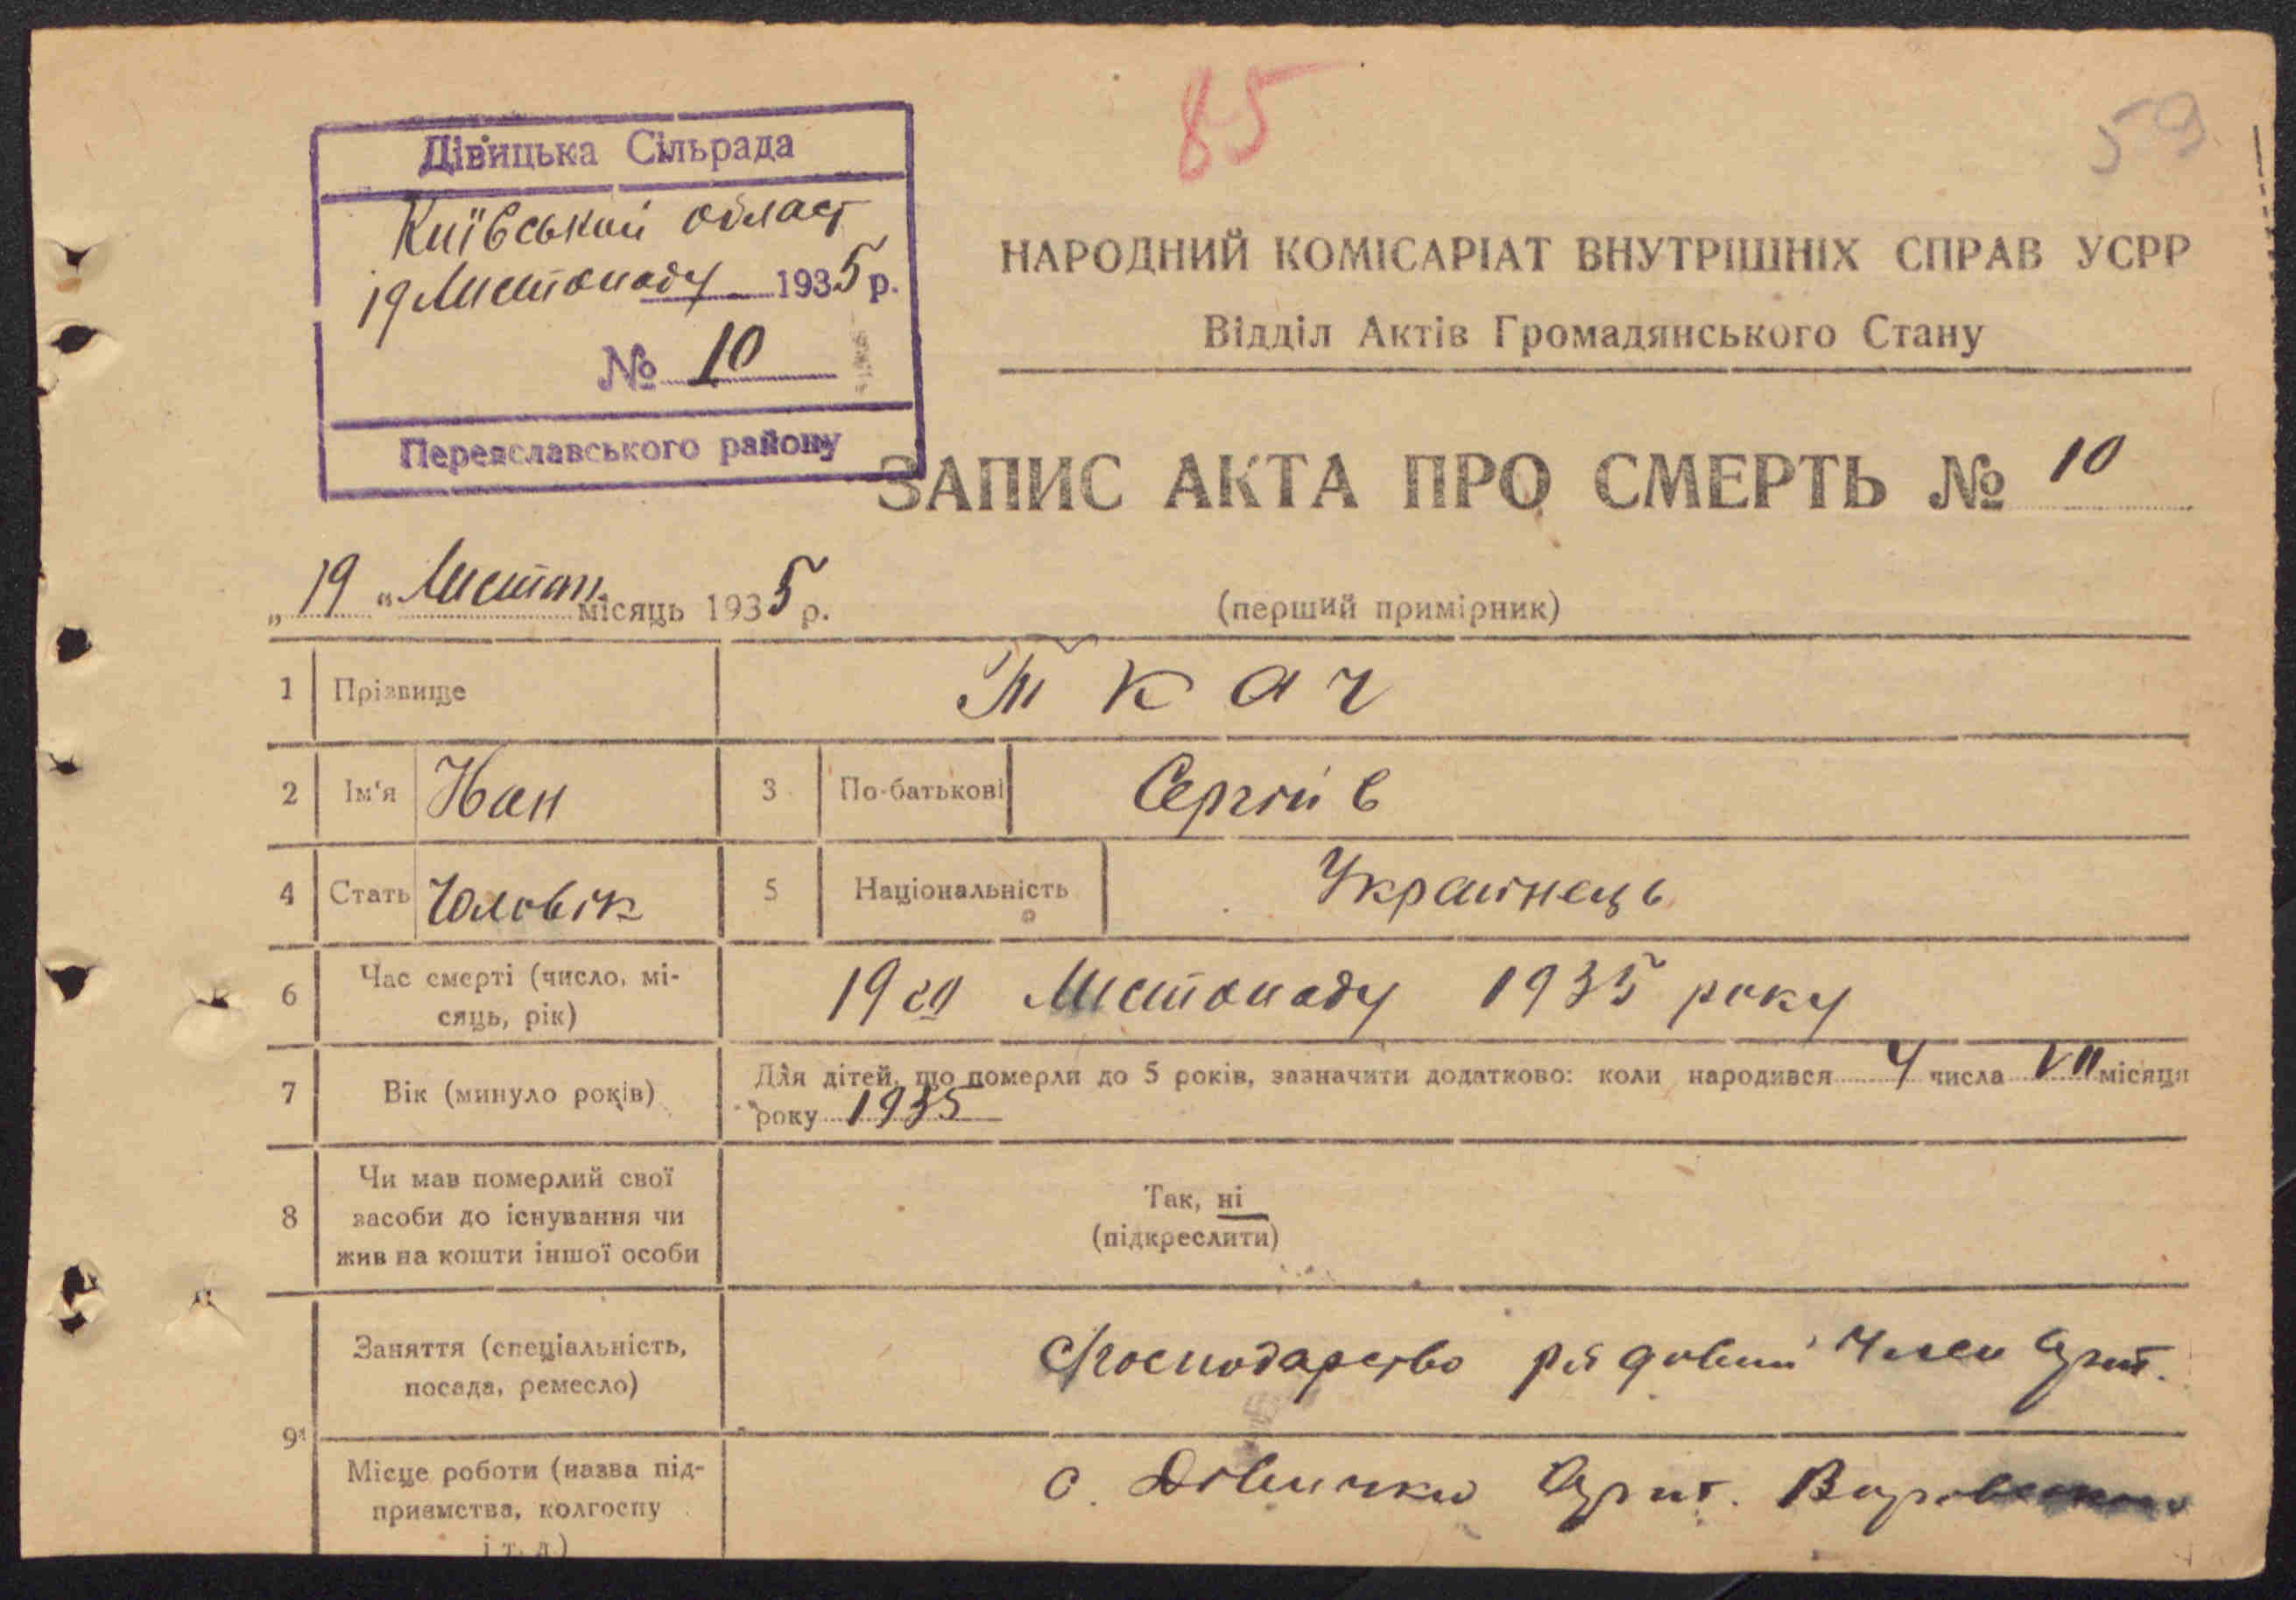 85
59
Дівицька Сільрада
Київський област
19 Листопаду 1935 р.
№ 10
Переяславського району
НАРОДНИЙ КОМІСАРІАТ ВНУТРІШНІХ СПРАВ УСРР
Відділ Актів Громадянського Стану
ЗАПИС АКТА ПРО СМЕРТЬ № 10
„ 19 “ Листоп. місяць 1935 р.
(перший примірник)
1 Прізвище Ткач
2 Ім'я Іван 3 По-батькові Сергіїв
4 Стать Чоловік 5 Національність Українець
6 Час смерті (число, мі-
сяць, рік) 19го Листопаду 1935 року
7 Вік (минуло років) Для дітей, що померли до 5 років, зазначити додатково: коли народився 4 числа VII місяця
року 1935
8 Чи мав померлий свої
засоби до існування чи
жив на кошти іншої особи
Так, ні
(підкреслити)
9 Заняття (спеціальність,
посада, ремесло) С/господарство рядовий член Арт.
Місце роботи (назва під-
приємства, колгоспу
і т. д.)
с. Дівички Арт.